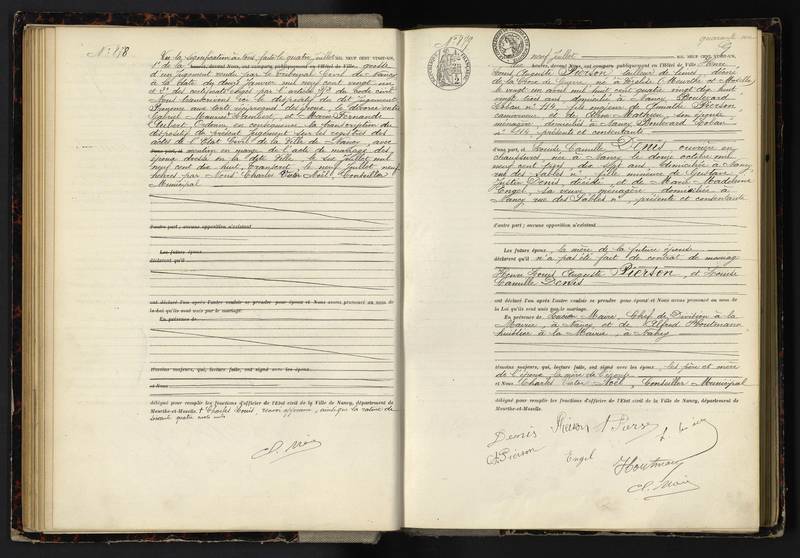 N° 858
Vu la signification à nous faite le quatre Juillet MIL NEUF CENT VINGT-UN,
1° de la grosse
d'un jugement rendu par le tribunal Civil de Nancy
à la date du douze Janvier mil neuf cent vingt un
et 2° des certificats exigés par l'article 548 du Code Civil
Nous transcrivons ici le dispositif du dit jugement
Prononce aux torts réciproques des époux, le divorce entre
Gabriel et Marie Fernande
Ordonne en conséquence la transcription du
dispositif du présent jugement sur les registres des
actes de l'Etat Civil de la Ville de Nancy, avec
mention en marge de l'acte de mariage des
époux dressé en la dite Ville, le six Juillet mil
neuf cent dix sept. Transcrit le neuf Juillet neuf
heures par Nous Charles Victor Noël, Conseiller
Municipal
d'autre part ; aucune opposition n'existant
Les futurs époux
déclarent qu'il
ont déclaré l'un après l'autre vouloir se prendre pour époux et Nous avons prononcé au nom de
la Loi qu'ils sont unis par le mariage.
En présence de
témoins majeurs, qui, lecture faite, ont signé avec les époux
et Nous
délégué pour remplir les fonctions d'officier de l'Etat civil de la Ville de Nancy, département de
Meurthe-et-Moselle.
C. Noël
N° 859
Le neuf Juillet MIL NEUF CENT VINGT-UN,
heures, devant Nous, ont comparu publiquement en l'Hôtel de Ville Henri
Louis Auguste Pierson, tailleur de limes, décoré
de la Croix de Guerre, né à (Meurthe et Moselle)
le vingt un avril mil huit cent quatre vingt dix huit
vingt trois ans, domicilié à Nancy Boulevard
Lobau n° 114, fils majeur de Camille Pierson
camionneur, et de Mathieu, son épouse
ménagère, domiciliés à Nancy Boulevard Lobau
n° 114, présents et consentants
d'une part, et Louise Camille Denis ouvrière en
chaussures, née à Nancy, le douze octobre mil
neuf cent domiciliée à Nancy
rue des Sables n° fille mineure de Gustave
Justin Denis, décédé, et de Marie Madeleine
Engel, sa veuve, ménagère, domiciliée à
Nancy rue des Sables n° , présente et consentante
d'autre part ; aucune opposition n'existant
Les futurs époux, la mère de la future épouse
déclarent qu'il n'a pas été fait de contrat de mariage
Henri Louis Auguste Pierson, et Louise
Camille Denis
ont déclaré l'un après l'autre vouloir se prendre pour époux et Nous avons prononcé au nom de
la Loi qu'ils sont unis par le mariage.
En présence de Maire, Chef de Division à la
Mairie, à Nancy et de Alfred Houtmann
huissier à la Mairie, à Nancy
témoins majeurs, qui, lecture faite, ont signé avec les époux, les père et mère
de l'époux, la mère de l'épouse
et Nous Charles Victor Noël, Conseiller Municipal
délégué pour remplir les fonctions d'officier de l'Etat civil de la Ville de Nancy, département de
Meurthe-et-Moselle.
Denis Pierson Pierson
Pierson Engel Houtmann
C. Noël